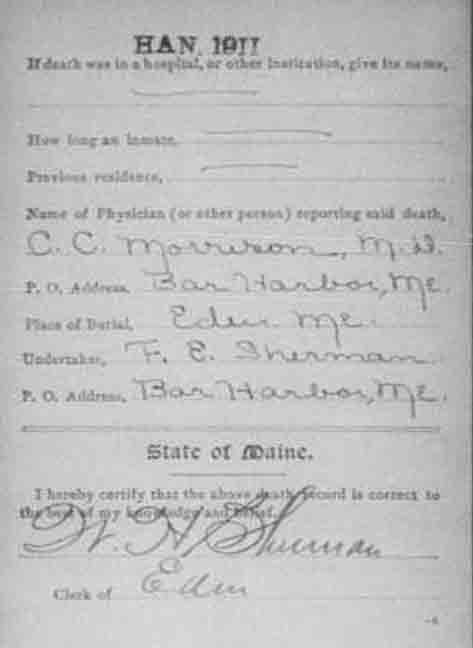 HAN 1911
If death was in a hospital, or other institution, give its name,
How long an inmate,
Previous residence,
Name of Physician (or other person) reporting said death,
C. C. Morrison, M.D.
P. O. Address, Bar Harbor, Me.
Place of Burial, Eden Me.
Undertaker, F. E. Sherman
P. O. Address, Bar Harbor, Me.
State of Maine.
I hereby certify that the above death record is correct to
the best of my knowledge and belief.
W. H. Sherman
Clerk of Eden